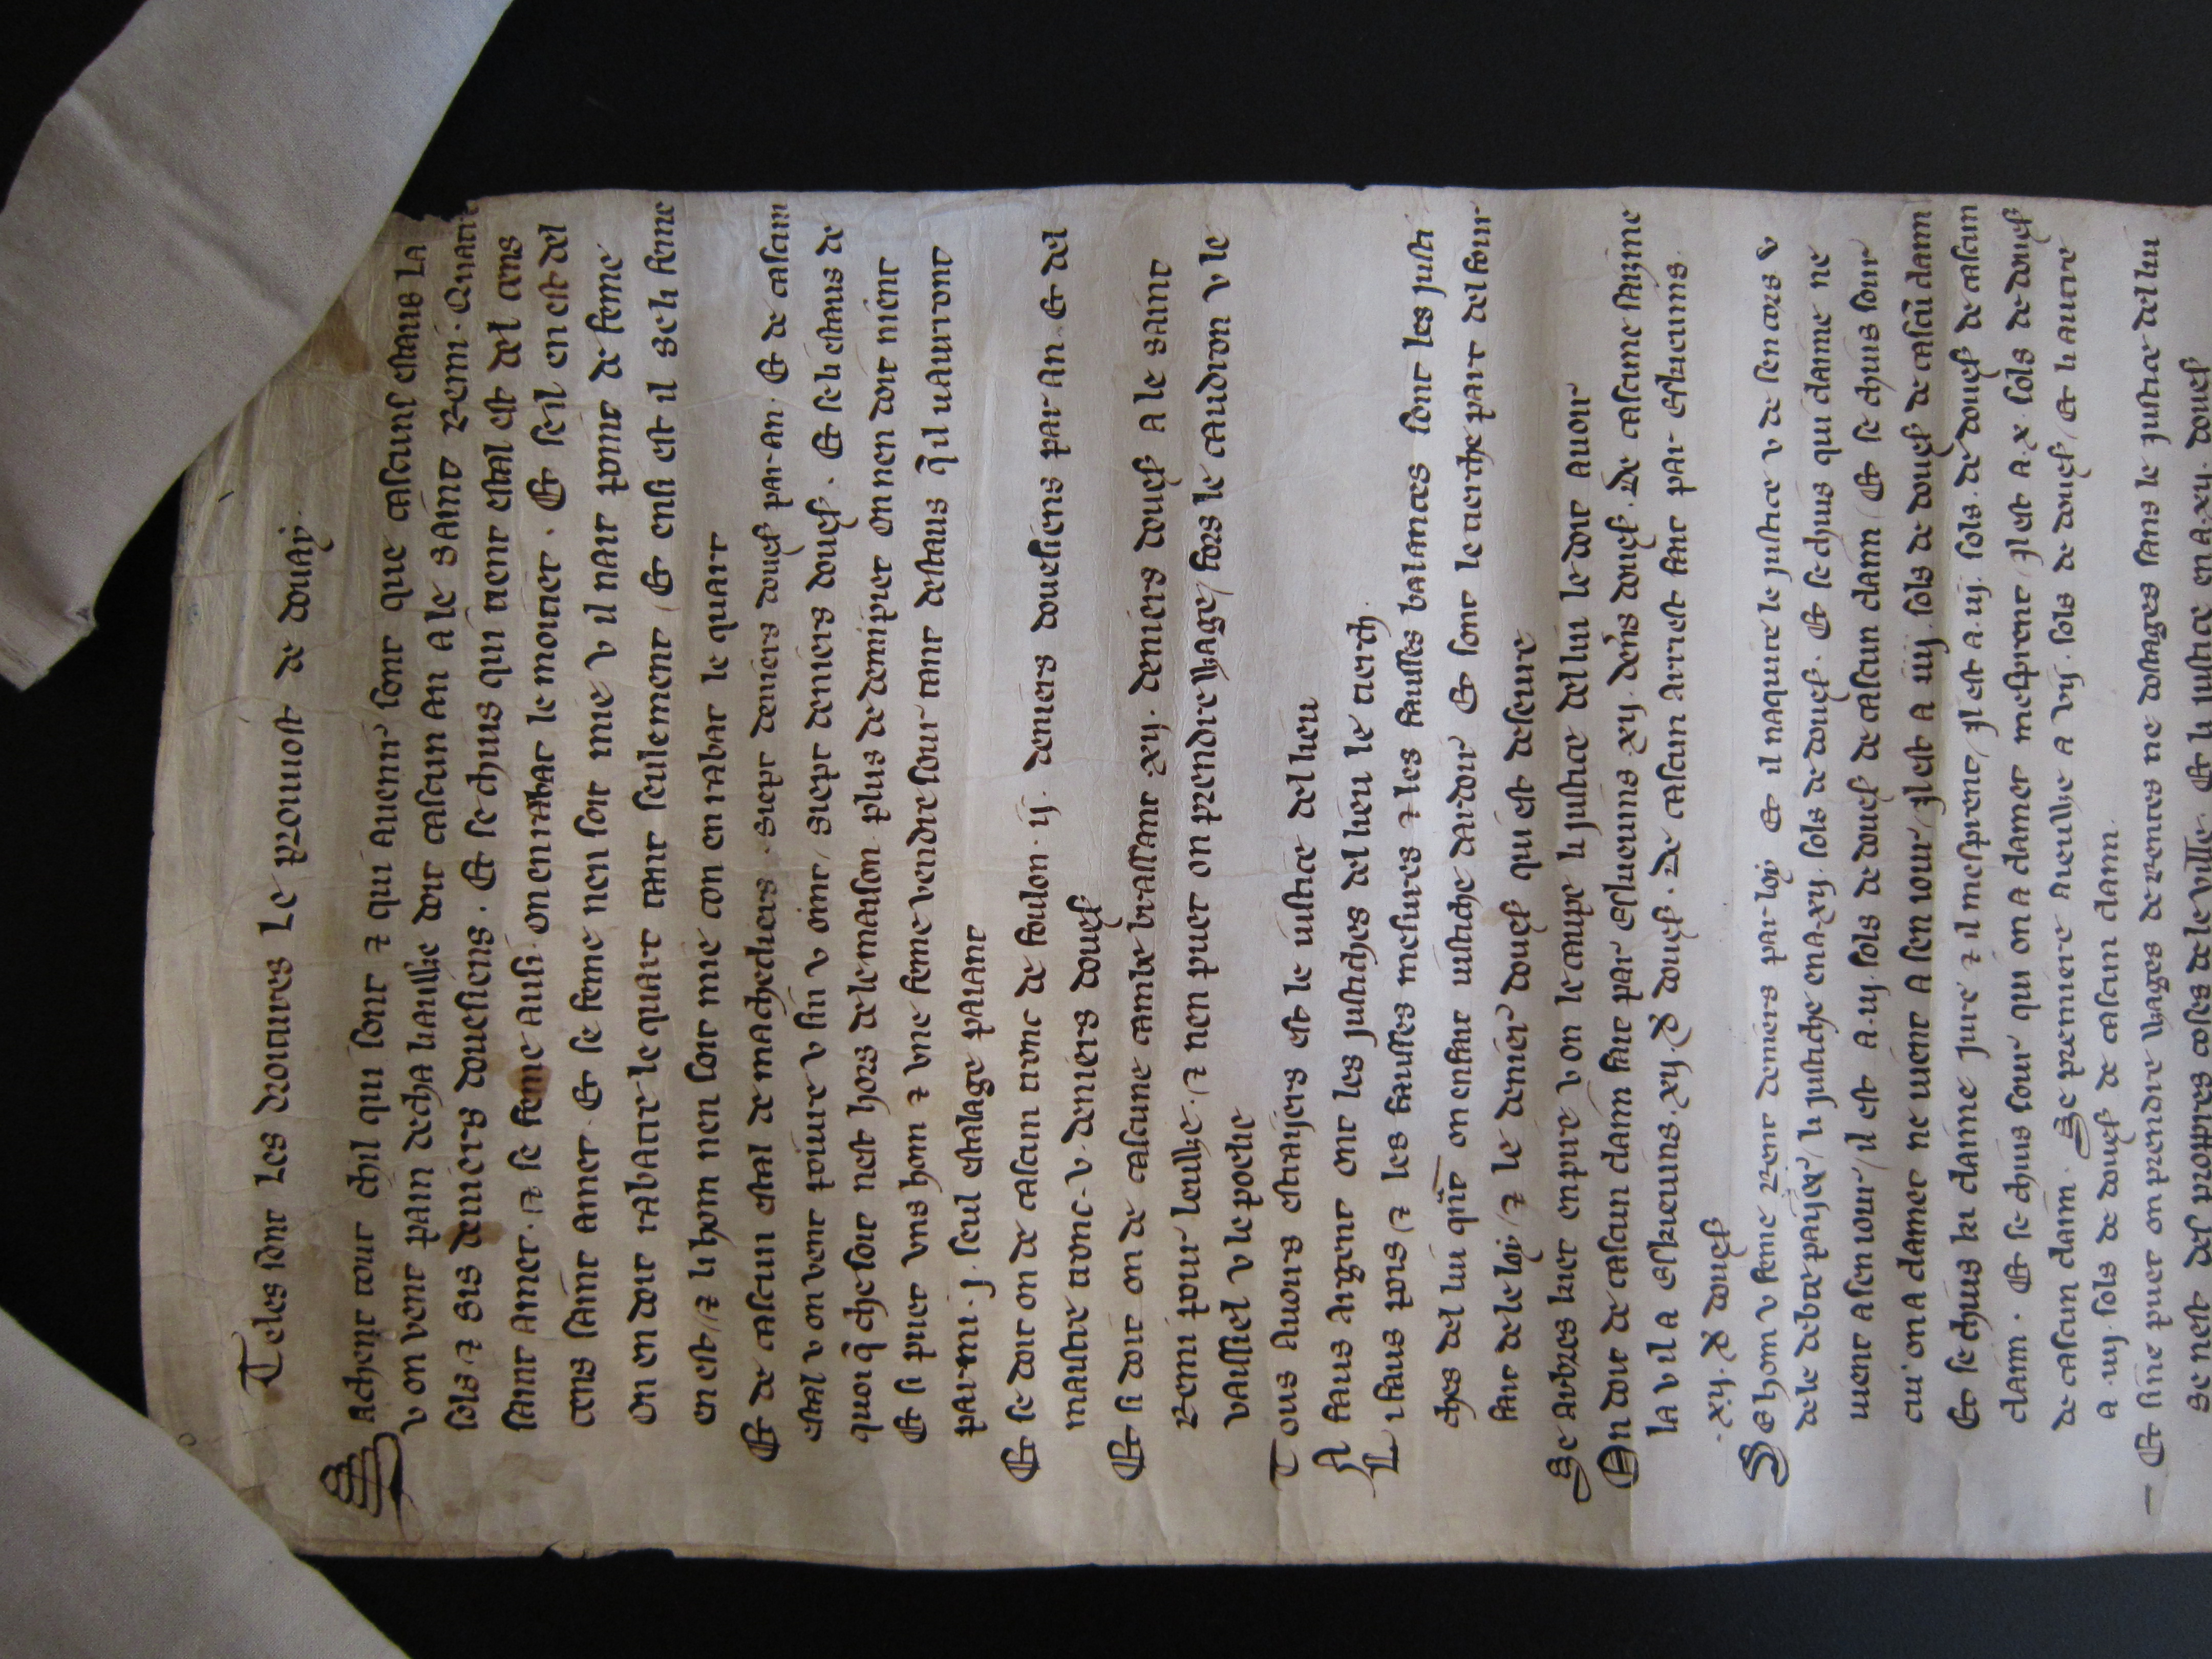 Teles sont les droitures le prouost de douay.
Sachent tout chil qui sont ⁊ qui auenir sont que cascuns estaus la
v on vent pain decha hauiske doit cascun an a le saint Remi. Quatre
sols ⁊ sis deniers douesiens. Et se chius qui tient estal est del cens
saint amet. ⁊ se feme ausi. on en rabat le moitiet. Et seil en est del
cens saint amet. Et se feme nen soit mie v il nait point de feme
on en doit rabatre le quart tant seulement / Et ensi est il se li feme
en est / ⁊ li hom nen soit mie con en rabat le quart
Et de cascun estal de machecliers. siept deniers douesiens par an. Et de cascun
estal v on vent poiure v sin v oint / siept deniers douesiens. Et se li estaus de
quoi q̄ che soit nest hors de le maison plus de demi piet on nen doit nient
Et si puet vns hom ⁊ vne feme vendre sour tant destaus q̄ il vaurront
parmi .j. seul estalage paiant
Et se doit on de cascun tronc de foulon .ij. deniers douesiens par an. Et del
maistre tronc .v. deniers doues
Et si doit on de cascune cambe brassant .xij. deniers doues a le saint
Remi pour leuske. ⁊ nen puet on prendre wage / fors le caudron v le
vaissiel v le poelie
Tous auoirs estraijers est le iustice del lieu
A faus argent ont les justiches del lieu le tierch.
Li faus pois / ⁊ les fausses mesures ⁊ les fausses balances sont les justi
ches del lui qn̄t on en fait iustiche dardoir Et sont le tierche part del four
fait de le loy / ⁊ le denier doues qui est deseure
Se arbres kiet en pire v on le caupe li justice del lui le doit auoir
On doit de cascun claim fait par eskieuins .xij. den's doues. De cascune saizine
la v il a eskieuins .xij. d' doues. De cascun arriest fait par eskieuins.
.xij. d' doues
Se hom v feme Rent deniers par loy Et il naquite le justice v de sen cors v
de le debte paijer / li justiche en a .xij. sols de doues. Et se chius qui claime ne
uient a sen iour / il est a .iij. sols de doues de cascun claim / Et se chius sour
cui on a clamet ne uient a sen iour / Jl est a .iiij. sols de doues de cascū claim
Et se chius ki claime jure ⁊ il mesprent / Jl est a .iij. sols de doues de cascun
claim. Et se chius sour qui on a clamet mesprent / Jl est a .x. sols de doues
de cascun claim. Se premiere aieuwe a .vij. sols de doues / Et li autre
a .iiij. sols de doues de cascun claim.
Et sine puet on prendre wages de rentes ne dostages sans le justice del lui
Se nest des propres coses de le ville. Et li justice en a .xij. doues